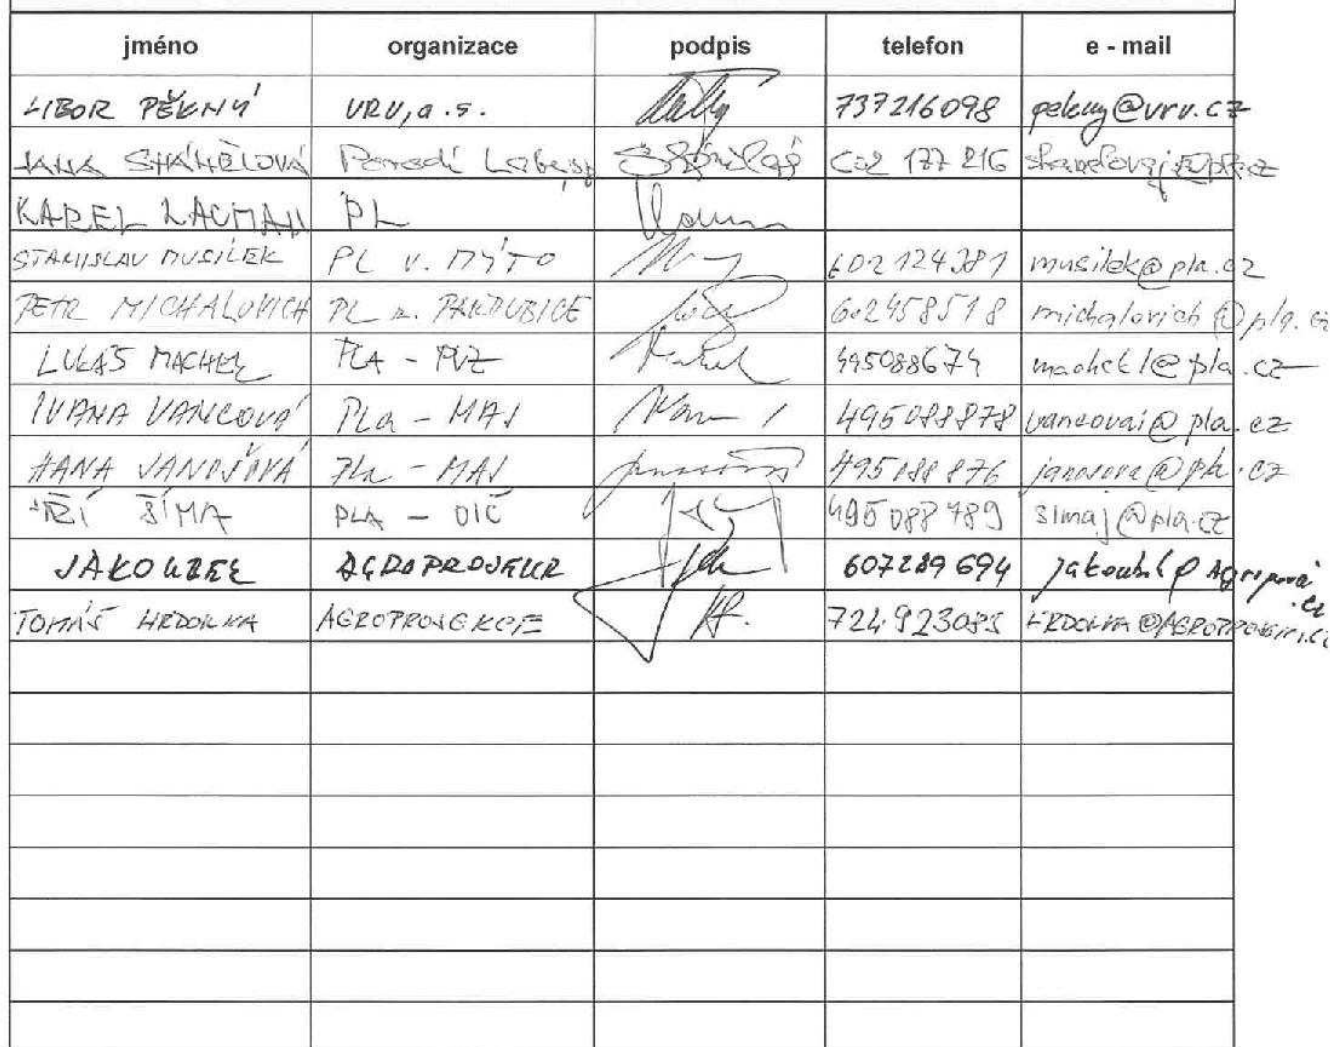 jméno organizace podpis telefon e - mail
LIBOR PĚKNÝ VRV, a.s. 737216098 pekny@vrv.cz
JANA SHÁNĚLOVÁ Povodí Labe, sp 602 177 216
KAREL LACMAN PL
STANISLAV MUSÍLEK PL V. MÝTO 602 124 381 musilek@pla.cz
PETR MICHALOVICH PL z. PARDUBICE 602458518 michalovich@pla.cz
LUKÁŠ MACHEK PLA - PVZ 495088674 machekl@pla.cz
IVANA VANCOVÁ PLa - MAJ 495088878 vancovai@pla.cz
HANA JANOŠOVÁ PLa - MAJ 495088876 janosova@pla.cz
JIŘÍ ŠÍMA PLA - OIČ 495 088 789 simaj@pla.cz
JAKOUBEK AGROPROJEKCE 607289694
TOMÁŠ HRDONKA AGROPROJEKCE 724923085